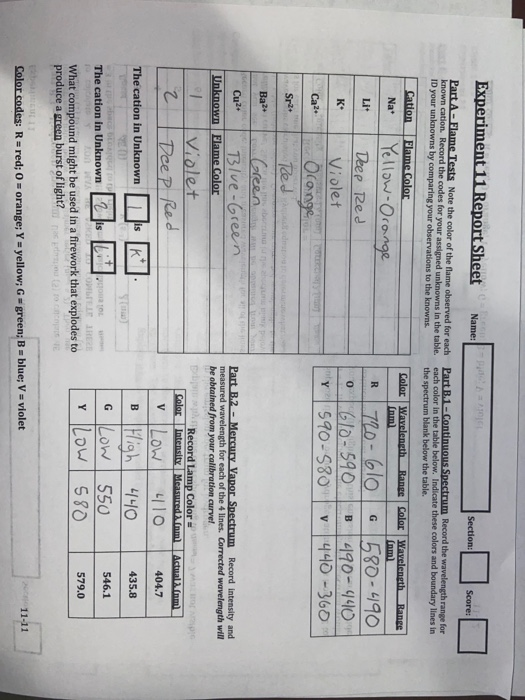 Experiment 11 Report Sheet Name: Section: Score:
Part A – Flame Tests Note the color of the flame observed for each
known cation. Record the codes for your assigned unknowns in the table.
ID your unknowns by comparing your observations to the knowns.
Cation Flame Color
Na+ Yellow-Orange
Li+ Deep Red
K+ Violet
Ca2+ Orange
Sr2+ Red
Ba2+ Green
Cu2+ Blue-Green
Unknown Flame Color
1 Violet
2 Deep Red
The cation in Unknown 1 is K+.
The cation in Unknown 2 is Li+
What compound might be used in a firework that explodes to
produce a green burst of light?
Part B.1 – Continuous Spectrum Record the wavelength range for
each color in the table below. Indicate these colors and boundary lines in
the spectrum blank below the table.
Color Wavelength Range (nm) Color Wavelength Range (nm)
R 720-610 G 580-490
O 610-590 B 490-440
Y 590-580 V 440-360
Part B.2 – Mercury Vapor Spectrum Record intensity and
measured wavelength for each of the 4 lines. Corrected wavelength will
be obtained from your calibration curve!
Record Lamp Color =
Color Intensity Measured λ (nm) Actual λ (nm)
V Low 410 404.7
B High 440 435.8
G Low 550 546.1
Y Low 580 579.0
Color codes: R = red; O = orange; Y = yellow; G = green; B = blue; V = violet
11-11